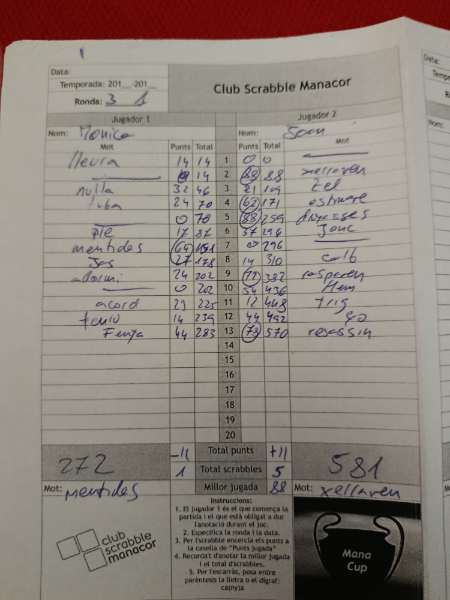 Data:
Temporada: 201__-201__
Ronda: 3 1
Club Scrabble Manacor
Jugador 1 Jugador 2
Nom: Monica Nom: Joan
Mot Punts Total Punts Total Mot
lleura 14 14 1 0 0
14 2 88 88 xellaven
nulla 32 46 3 21 109 tel
tuba 24 70 4 62 171 estimare
0 70 5 88 259
ple 17 87 6 37 296 Jonc
mentides 64 151 7 0 296
Jes 27 178 8 14 310 calb
adormi 24 202 9 72 382 resperen
0 202 10 54 436 Hem
acord 23 225 11 12 448 trig
tenio 14 239 12 44 492 ça
Fenya 44 283 13 78 570 ressin
14
15
16
17
18
19
20
272 -11 Total punts +11 581
1 Total scrabbles 5
Mot: mentides Millor jugada 88 Mot: xellaven
Instruccions:
1. El jugador 1 és el que comença la
partida i el que està obligat a dur
l'anotació durant el joc.
2. Especifica la ronda i la data.
3. Per l'scrabble encercla els punts a
la casella de "Punts jugada"
4. Recorda't d'anotar la millor jugada
i el total d'scrabbles.
5. Per l'escarràs, posa entre
parèntesis la lletra o el dígraf:
ca(ny)a
club
scrabble
manacor
Mana
Cup